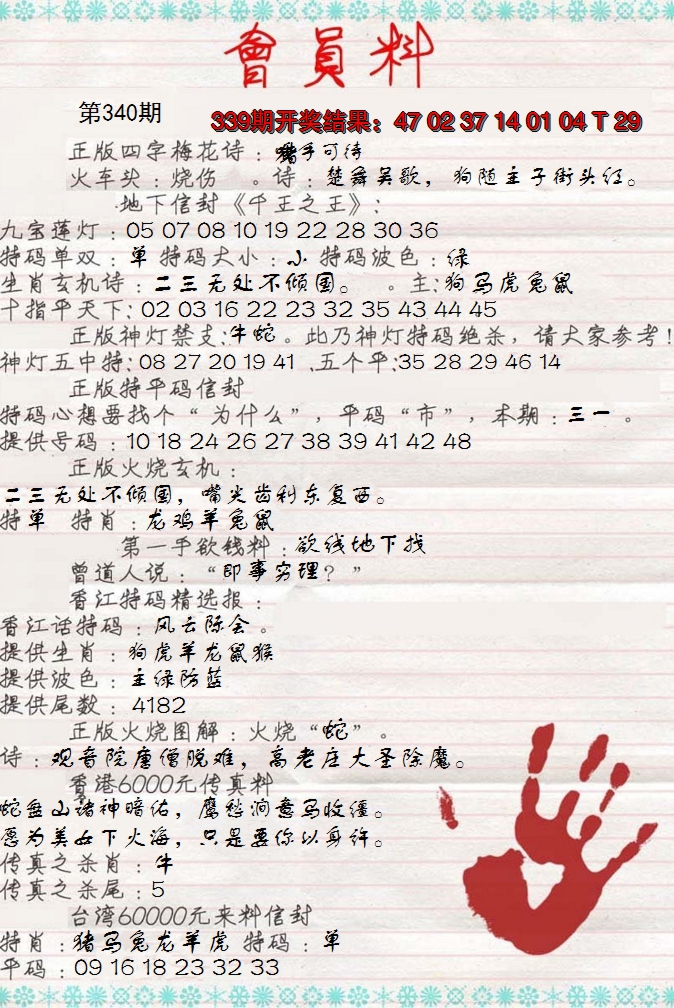 會員料
第340期
339期开奖结果：47 02 37 14 01 04 T 29
正版四字梅花诗：手可待
火车头：烧伤 。诗：楚舞吴歌，狗随主子街头红。
地下信封《千王之王》：
九宝莲灯：05 07 08 10 19 22 28 30 36
特码单双：单 特码大小：小 特码波色：绿
生肖玄机诗：二三无处不倾国。 。主：狗马虎兔鼠
十指平天下：02 03 16 22 23 32 35 43 44 45
正版神灯禁支：牛蛇。此乃神灯特码绝杀，请大家参考！
神灯五中特：08 27 20 19 41 、五个平：35 28 29 46 14
正版特平码信封
特码心想要找个“为什么”，平码“市”，本期：三一 。
提供号码：10 18 24 26 27 38 39 41 42 48
正版火烧玄机：
二三无处不倾国，嘴尖齿利东复西。
特单 特肖：龙鸡羊兔鼠
第一手欲钱料：欲钱地下找
曾道人说：“即事穷理？”
香江特码精选报：
香江话特码：风云际会。
提供生肖：狗虎羊龙鼠猴
提供波色：主绿防蓝
提供尾数：4182
正版火烧图解：火烧“蛇”。
诗：观音院唐僧脱难，高老庄大圣除魔。
香港6000元传真料
蛇盘山诸神暗佑，鹰愁涧意马收缰。
愿为美女下火海，只是要你以身许。
传真之杀肖：牛
传真之杀尾：5
台湾60000元来料信封
特肖：猪马兔龙羊虎 特码：单
平码：09 16 18 23 32 33